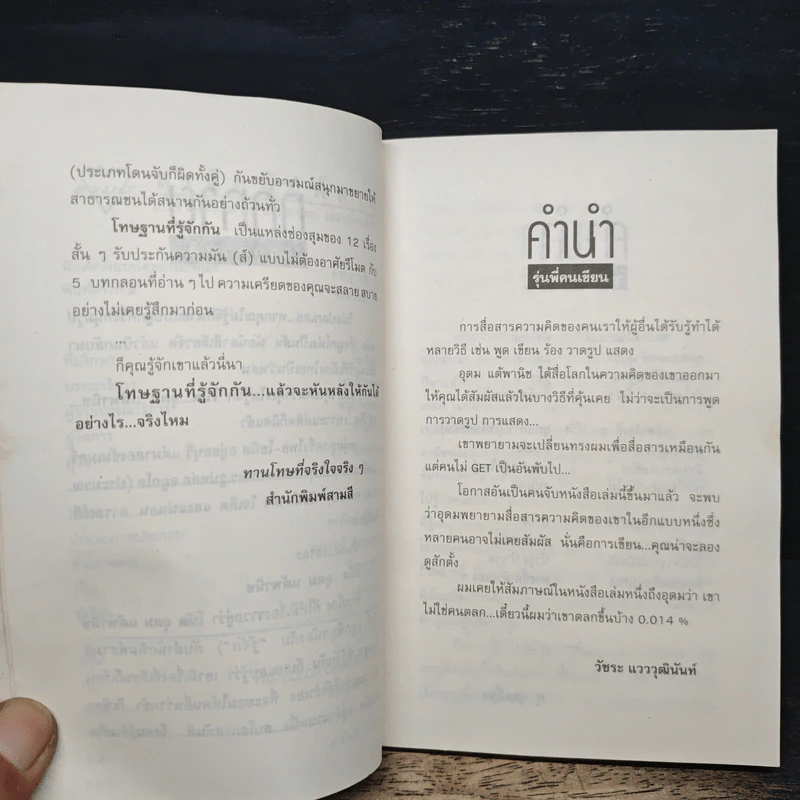 (ประเภทโดนจับก็ผิดทั้งคู่) กันขยับอารมณ์สนุกมาขยายให้
สาธารณชนได้สนานกันอย่างถ้วนทั่ว
โทษฐานที่รู้จักกัน เป็นแหล่งซ่องสุมของ 12 เรื่อง
สั้น ๆ รับประกันความมัน (ส์) แบบไม่ต้องอาศัยรีโมต กับ
5 บทกลอนที่อ่าน ๆ ไป ความเครียดของคุณจะสลาย สบาย
อย่างไม่เคยรู้สึกมาก่อน
...
ก็คุณรู้จักเขาแล้วนี่นา
โทษฐานที่รู้จักกัน...แล้วจะหันหลังให้กันได้
อย่างไร...จริงไหม
ทานโทษที่จริงใจจริง ๆ
สำนักพิมพ์สามสี
คำนำ
รุ่นพี่คนเขียน
การสื่อสารความคิดของคนเราให้ผู้อื่นได้รับรู้ทำได้
หลายวิธี เช่น พูด เขียน ร้อง วาดรูป แสดง
อุดม แต้พานิช ได้สื่อโลกในความคิดของเขาออกมา
ให้คุณได้สัมผัสแล้วในบางวิธีที่คุ้นเคย ไม่ว่าจะเป็นการพูด
การวาดรูป การแสดง...
เขาพยายามจะเปลี่ยนทรงผมเพื่อสื่อสารเหมือนกัน
แต่คนไม่ GET เป็นอันพับไป...
โอกาสอันเป็นคนจับหนังสือเล่มนี้ขึ้นมาแล้ว จะพบ
ว่าอุดมพยายามสื่อสารความคิดของเขาในอีกแบบหนึ่งซึ่ง
หลายคนอาจไม่เคยสัมผัส นั่นคือการเขียน...คุณน่าจะลอง
ดูสักตั้ง
ผมเคยให้สัมภาษณ์ในหนังสือเล่มหนึ่งถึงอุดมว่า เขา
ไม่ใช่คนตลก...เดี๋ยวนี้ผมว่าเขาตลกขึ้นบ้าง 0.014 %
วัชระ แวววุฒินันท์